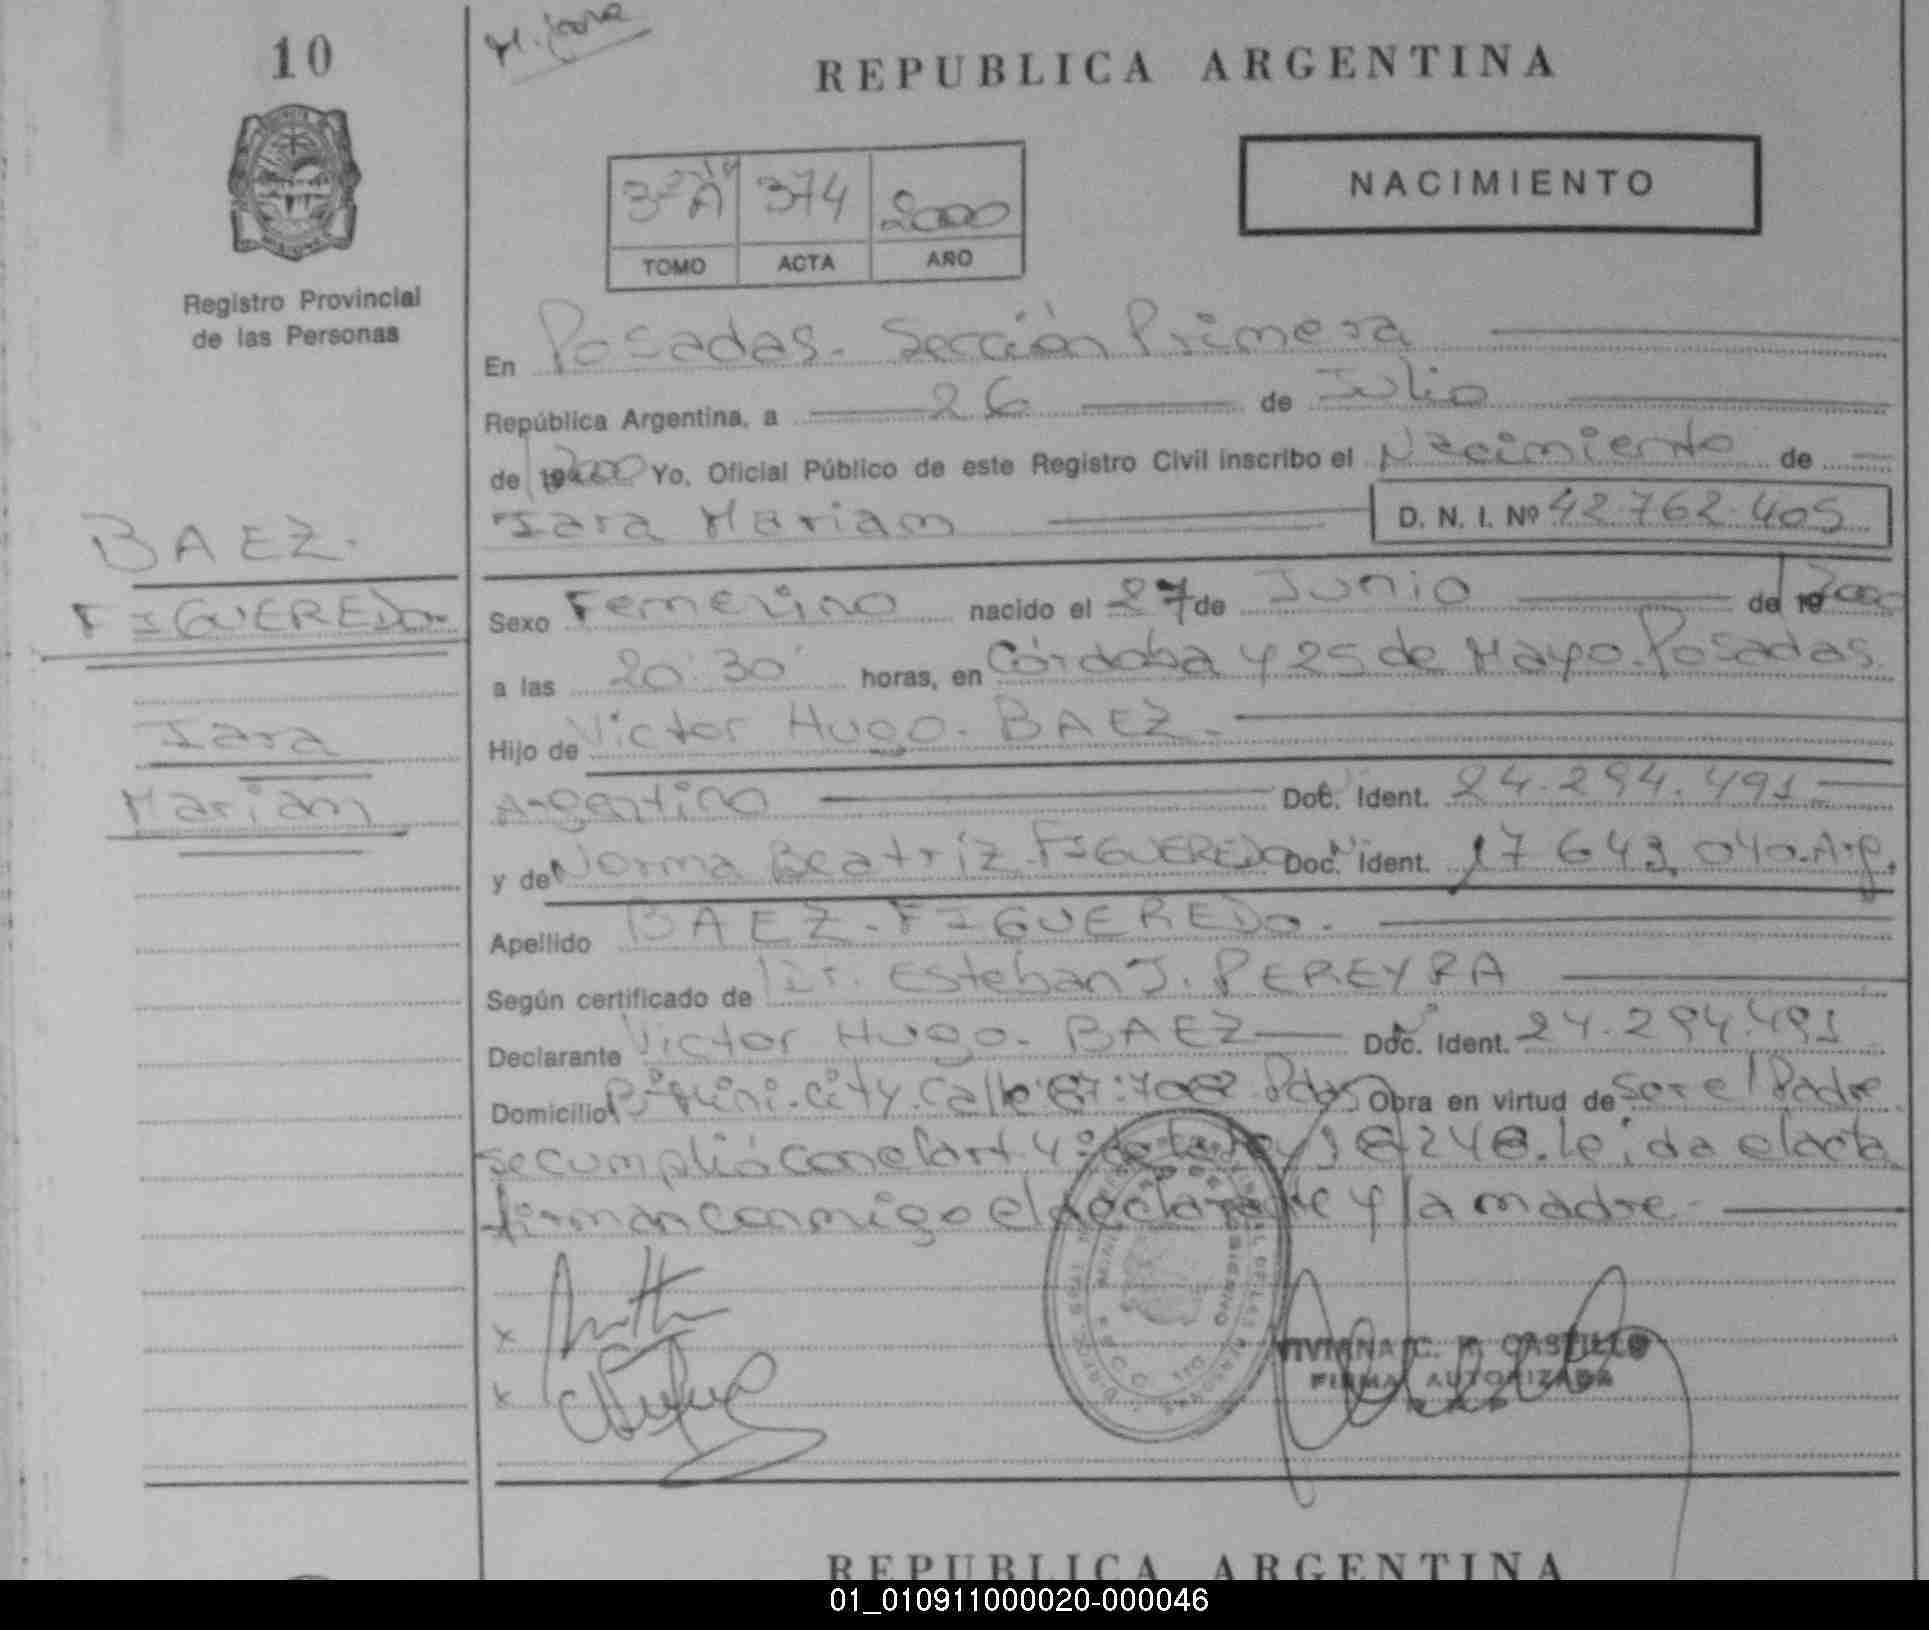 10
M. Jara
REPUBLICA ARGENTINA
NACIMIENTO
374 2000
TOMO ACTA AÑO
Registro Provincial
de las Personas
En Posadas. Sección Primera
República Argentina, a 26 de Julio
de 19 2000 Yo, Oficial Público de este Registro Civil inscribo el Nacimiento de
Iara Mariam D. N. I. Nº 42.762.405
BAEZ.
FIGUEREDO.
Sexo Femenino nacido el 27 de Junio de 19 2000
a las 20:30 horas, en Córdoba y 25 de Mayo. Posadas.
Iara
Hijo de Victor Hugo. BAEZ.
Mariam
Argentino Doc. Ident. 24.294.491
y de Norma Beatríz. FIGUEREDO Doc. Ident. 17.643.040. Arg.
Apellido BAEZ. FIGUEREDO.
Según certificado de Dr. Esteban J. PEREYRA
Declarante Victor Hugo. BAEZ Doc. Ident. 24.294.491
Domicilio city. Calle Pdas Obra en virtud de ser el Padre
se cumplió con el art. 4º de la ley 18.248. leída el acta
firman conmigo el declarante y la madre.
x
x
VIVIANA C. CASTILLO
FIRMA AUTORIZADA
REPUBLICA ARGENTINA
01_010911000020-000046